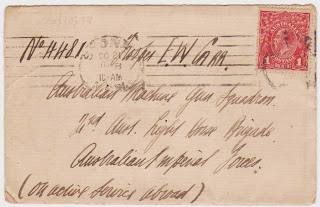 No 4481 Trooper E W Carr.
Australian Machine Gun Squadron.
2nd Aust. Light Horse Brigade
Australian Imperial Forces.
(on active service abroad)
10-AM
AUSTRALIA
1 1